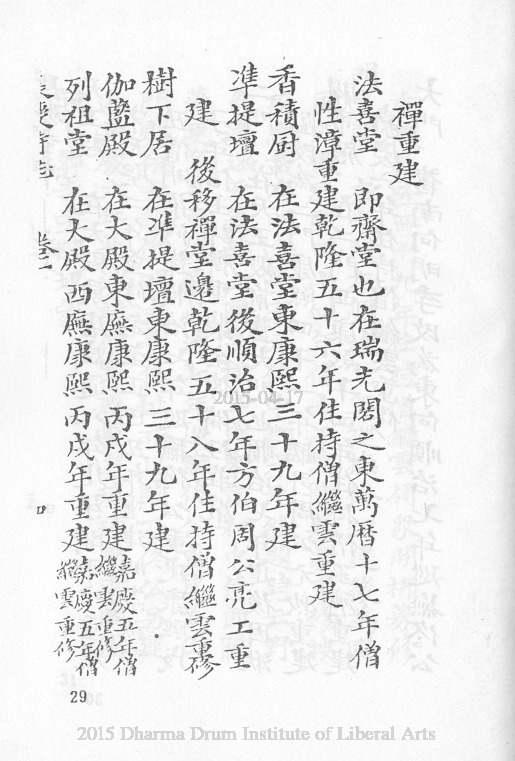 禪重建
法喜堂　即齋堂也在瑞光閣之東萬曆十七年僧
性漳重建乾隆五十六年住持僧繼雲重建
香積厨　在法喜堂東康熙三十九年建
凖提壇　在法喜堂後順治七年方伯周公亮工重
建　後移禪堂邊乾隆五十八年住持僧繼雲重修
樹下居　在凖提壇東康熙三十九年建
伽藍殿　在大殿東廡康熙丙戌年重建嘉慶五年僧
繼雲重修
列祖堂　在大殿西廡康熙丙戌年重建嘉慶五年僧
繼雲重修
卷二
29
2015-04-17
2015 Dharma Drum Institute of Liberal Arts